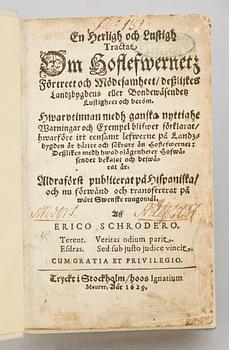 En Herligh och Lustigh
Tractat,
Om Hoflefwernetz
Förtreet och Mödesamheet/ deßlijkes
Landzbygdens eller Bondewäsendetz
Lustigheet och beröm.
Hwarvtinnan medh ganska nyttighe
Warningar och Exempel blifwer förklarat/
hwarföre itt eensamt lefwerne på Landz-
bygden är bättre och säkrare än Hoflefwernet:
Deßlikes medh hwad olägenheter Hofwä-
sendet bekajat och beswä-
rat är.
Aldraförst publicerat på Hispaniska/
och nu förwänd och transfererat på
wårt Swenske tungomål.
Aff
ERICO SCHRODERO.
Terent. Veritas odium parit.
Esdras. Sed sub justo judice vincit.
CUM GRATIA ET PRIVILEGIO.
Tryckt i Stockholm/ hoos Ignatium
Meurer, Åår 1629.